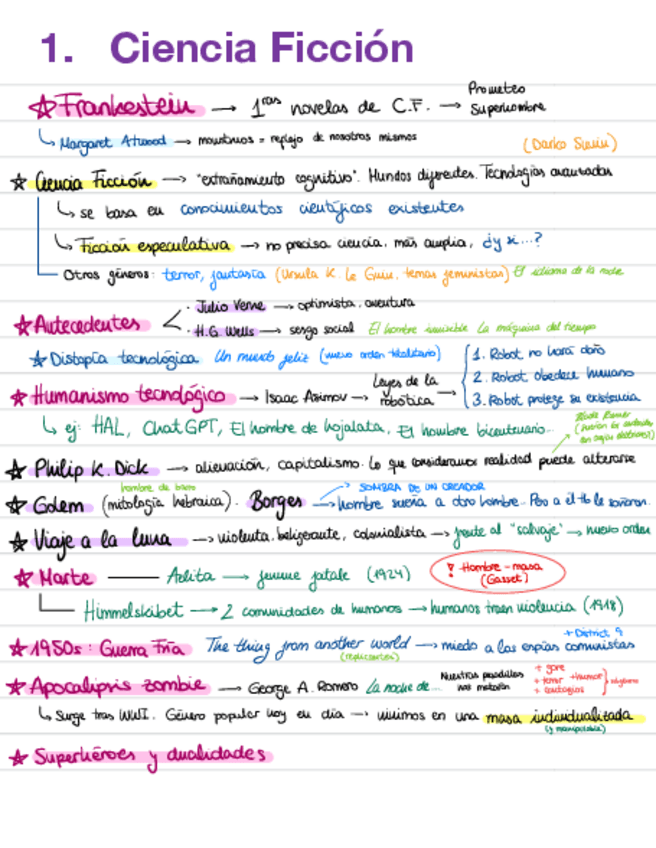 1. Ciencia Ficción
☆ Frankestein → 1ras novelas de C.F. → Prometeo
Superhombre
↳ Margaret Atwood → monstruos = reflejo de nosotros mismos
(Darko Suvin)
☆ Ciencia Ficción → "extrañamiento cognitivo". Mundos diferentes. Tecnologías avanzadas
↳ se basa en conocimientos científicos existentes
↳ Ficción especulativa → no precisa ciencia, más amplia, ¿y si...?
Otros géneros: terror, fantasía (Ursula K. Le Guin. temas feministas) El idioma de la noche
☆ Antecedentes < · Julio Verne → optimista, aventura
· H.G. Wells → sesgo social El hombre invisible La máquina del tiempo
☆ Distopía tecnológica Un mundo feliz (nuevo orden totalitario)
1. Robot no hará daño
2. Robot obedece humano
3. Robot protege su existencia
☆ Humanismo tecnológico → Isaac Asimov → Leyes de la robótica →
↳ ej: HAL, ChatGPT, El hombre de hojalata, El hombre bicentenario...
Blade Runner
☆ Philip K. Dick → alienación, capitalismo. Lo que consideramos realidad puede alterarse
hombre de barro
SOMBRA DE UN CREADOR
☆ Golem (mitología hebraica). Borges → hombre sueña a otro hombre. Pero a él tb le soñaron.
☆ Viaje a la luna → violenta, beligerante, colonialista → frente al "salvaje" → nuevo orden
☆ Marte — Aelita → femme fatale (1924)
? Hombre-masa
(Gasset)
Himmelskibet → 2 comunidades de humanos → humanos traen violencia (1918)
+ District 9
☆ 1950s: Guerra Fría The thing from another world → miedo a los espías comunistas
(replicantes)
☆ Apocalipsis zombie → George A. Romero La noche de... Nuestras pesadillas
nos matarán
+ gore
+ terror + humor
+ contagios
↳ Surge tras WWI. Género popular hoy en día → vivimos en una masa individualizada
(y manipulable)
☆ Superhéroes y dualidades